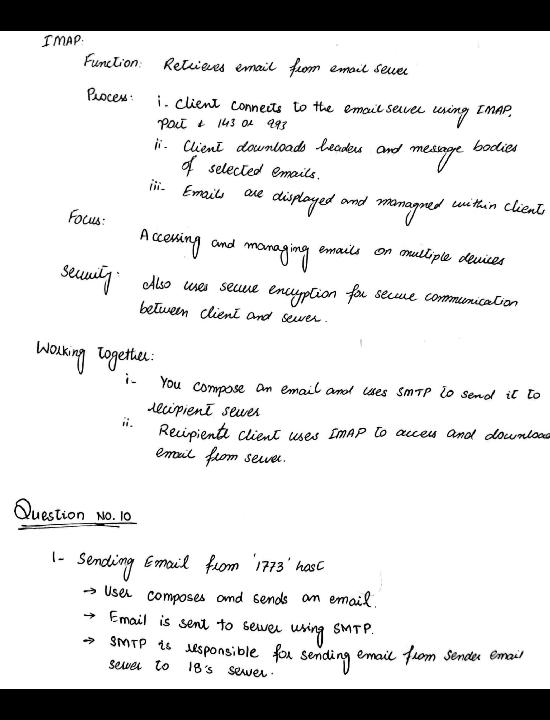 IMAP:
Function: Retrieves email from email server
Process: i. Client connects to the email server using IMAP,
port + 143 or 993
ii- Client downloads headers and message bodies
of selected emails.
iii- Emails are displayed and managned within clients
Focus:
Accessing and managing emails on multiple devices
Security:
Also uses secure encryption for secure communication
between client and server.
Working together:
i- You compose an email and uses SMTP to send it to
recipient server
ii. Recipients client uses IMAP to access and download
email from server.
Question NO. 10
1- Sending Email from '1773' host
→ User composes and sends an email.
→ Email is sent to server using SMTP.
→ SMTP is responsible for sending email from sender email
server to 18's server.